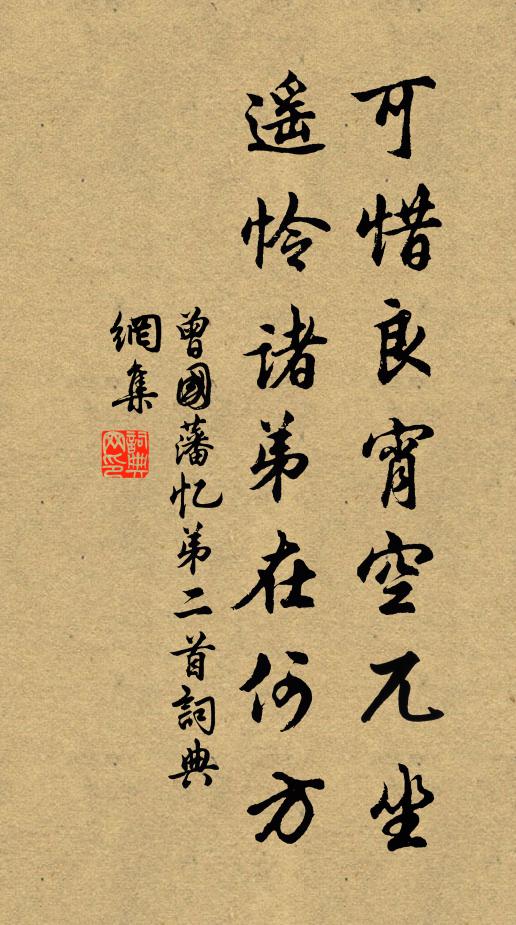 可惜良宵空兀坐
遥憐諸弟在何方
曾國藩忆弟二首詞典
網集
詞典
网印